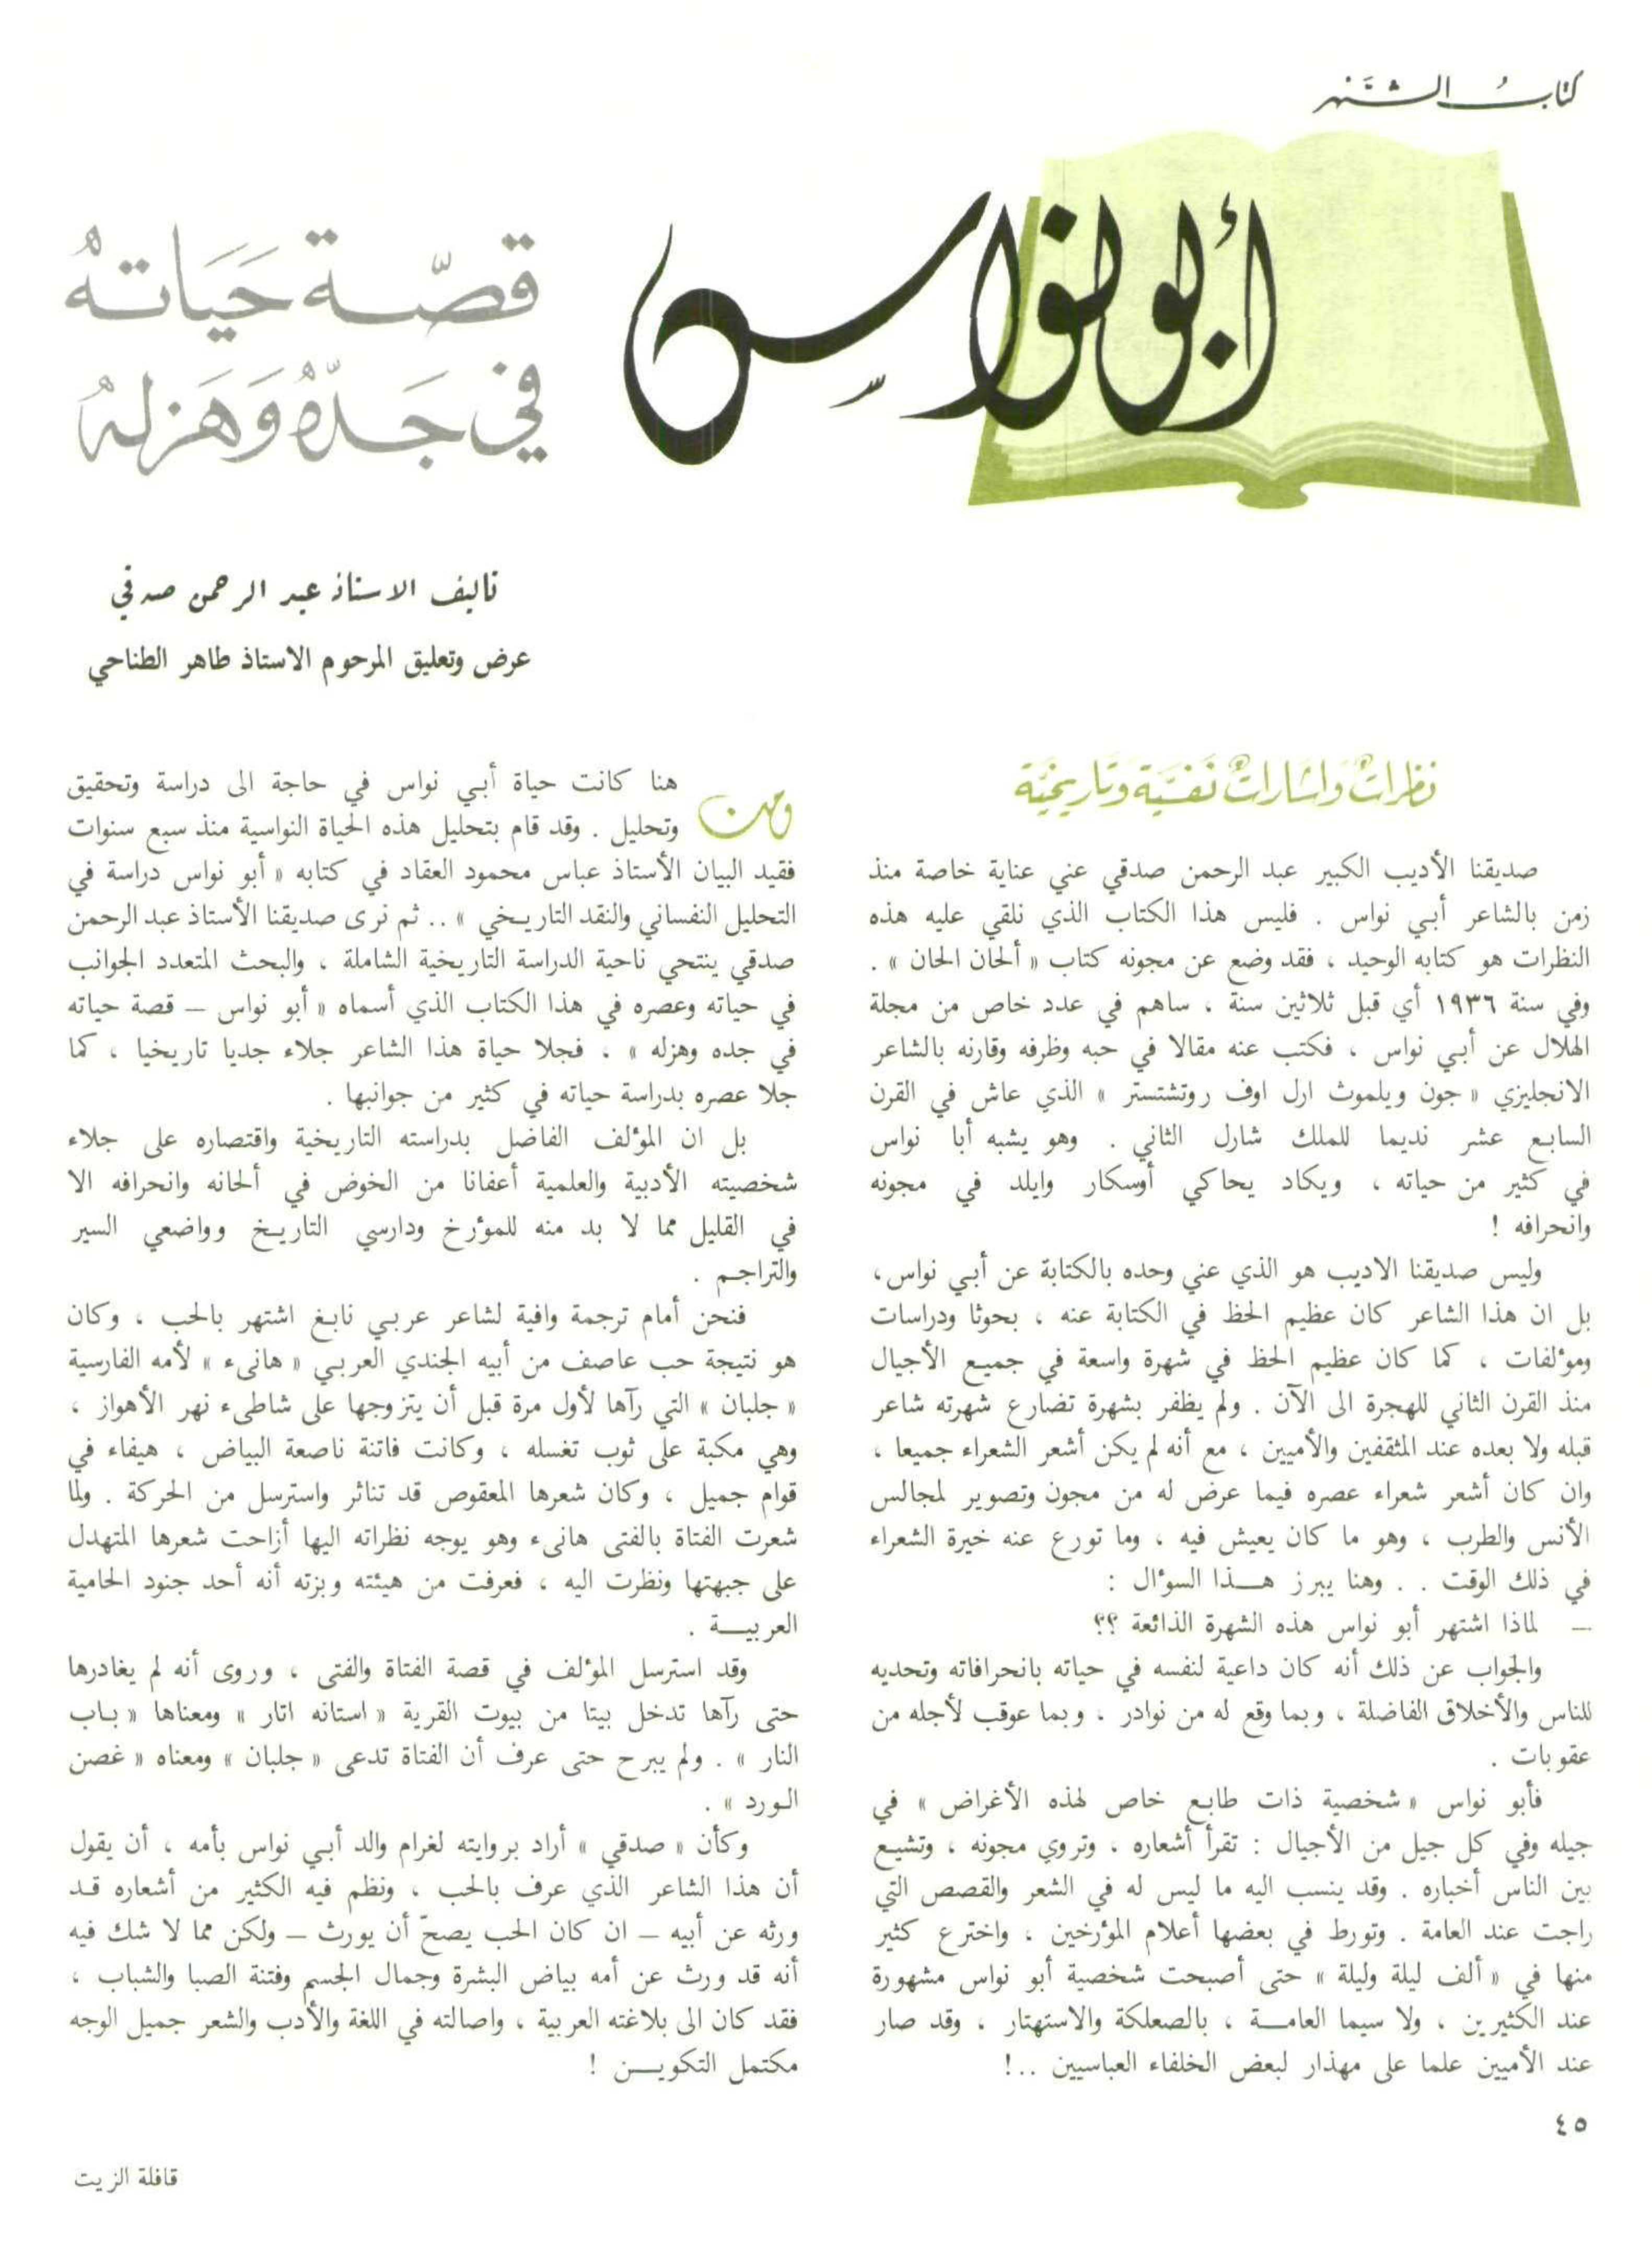 كتاب الشهر
أبو نواس
قصّة حَيَاته
في جَدّه وَهَزله
تأليف الاستاذ عبد الرحمن صدقي
عرض وتعليق المرحوم الاستاذ طاهر الطناحي
نظراتٌ واشاراتٌ نَفسيَّة وتَاريخيَّة
صديقنا الأديب الكبير عبد الرحمن صدقي عني عناية خاصة منذ
زمن بالشاعر أبي نواس . فليس هذا الكتاب الذي نلقي عليه هذه
النظرات هو كتابه الوحيد ، فقد وضع عن مجونه كتاب « ألحان الحان » .
وفي سنة ١٩٣٦ أي قبل ثلاثين سنة ، ساهم في عدد خاص من مجلة
الهلال عن أبي نواس ، فكتب عنه مقالا في حبه وظرفه وقارنه بالشاعر
الانجليزي « جون ويلموث ارل اوف روتشتستر » الذي عاش في القرن
السابع عشر نديما للملك شارل الثاني . وهو يشبه أبا نواس
في كثير من حياته ، ويكاد يحاكي أوسكار وايلد في مجونه
وانحرافه !
وليس صديقنا الاديب هو الذي عني وحده بالكتابة عن أبي نواس،
بل ان هذا الشاعر كان عظيم الحظ في الكتابة عنه ، بحوثا ودراسات
ومؤلفات ، كما كان عظيم الحظ في شهرة واسعة في جميع الأجيال
منذ القرن الثاني للهجرة الى الآن . ولم يظفر بشهرة تضارع شهرته شاعر
قبله ولا بعده عند المثقفين والأميين ، مع أنه لم يكن أشعر الشعراء جميعا ،
وان كان أشعر شعراء عصره فيما عرض له من مجون وتصوير لمجالس
الأنس والطرب ، وهو ما كان يعيش فيه ، وما تورع عنه خيرة الشعراء
في ذلك الوقت . . وهنا يبرز هــذا السؤال :
– لماذا اشتهر أبو نواس هذه الشهرة الذائعة ؟؟
والجواب عن ذلك أنه كان داعية لنفسه في حياته بانحرافاته وتحديه
للناس والأخلاق الفاضلة ، وبما وقع له من نوادر ، وبما عوقب لأجله من
عقوبات .
فأبو نواس « شخصية ذات طابع خاص لهذه الأغراض » في
جيله وفي كل جيل من الأجيال : تقرأ أشعاره ، وتروي مجونه ، وتشيع
بين الناس أخباره . وقد ينسب اليه ما ليس له في الشعر والقصص التي
راجت عند العامة . وتورط في بعضها أعلام المؤرخين ، واخترع كثير
منها في « ألف ليلة وليلة » حتى أصبحت شخصية أبو نواس مشهورة
عند الكثيرين ، ولا سيما العامــة ، بالصعلكة والاستهتار ، وقد صار
عند الأميين علما على مهذار لبعض الخلفاء العباسيين ..!
ومن هنا كانت حياة أبي نواس في حاجة الى دراسة وتحقيق
وتحليل . وقد قام بتحليل هذه الحياة النواسية منذ سبع سنوات
فقيد البيان الأستاذ عباس محمود العقاد في كتابه « أبو نواس دراسة في
التحليل النفساني والنقد التاريخي » .. ثم نرى صديقنا الأستاذ عبد الرحمن
صدقي ينتحي ناحية الدراسة التاريخية الشاملة ، والبحث المتعدد الجوانب
في حياته وعصره في هذا الكتاب الذي أسماه « أبو نواس – قصة حياته
في جده وهزله » ، فجلا حياة هذا الشاعر جلاء جديا تاريخيا ، كما
جلا عصره بدراسة حياته في كثير من جوانبها .
بل ان المؤلف الفاضل بدراسته التاريخية واقتصاره على جلاء
شخصيته الأدبية والعلمية أعفانا من الخوض في ألحانه وانحرافه الا
في القليل مما لا بد منه للمؤرخ ودارسي التاريخ وواضعي السير
والتراجم .
فنحن أمام ترجمة وافية لشاعر عربي نابغ اشتهر بالحب ، وكان
هو نتيجة حب عاصف من أبيه الجندي العربي « هانىء » لأمه الفارسية
« جلبان » التي رآها لأول مرة قبل أن يتزوجها على شاطىء نهر الأهواز ،
وهي مكبة على ثوب تغسله ، وكانت فاتنة ناصعة البياض ، هيفاء في
قوام جميل ، وكان شعرها المعقوص قد تناثر واسترسل من الحركة . ولما
شعرت الفتاة بالفتى هانىء وهو يوجه نظراته اليها أزاحت شعرها المتهدل
على جبهتها ونظرت اليه ، فعرفت من هيئته وبزته أنه أحد جنود الحامية
العربيــة .
وقد استرسل المؤلف في قصة الفتاة والفتى ، وروى أنه لم يغادرها
حتى رآها تدخل بيتا من بيوت القرية « استانه اتار » ومعناها « بـاب
النار » . ولم يبرح حتى عرف أن الفتاة تدعى « جلبان » ومعناه « غصن
الـورد » .
وكأن « صدقي » أراد بروايته لغرام والد أبي نواس بأمه ، أن يقول
أن هذا الشاعر الذي عرف بالحب ، ونظم فيه الكثير من أشعاره قـد
ورثه عن أبيه – ان كان الحب يصحّ أن يورث – ولكن مما لا شك فيه
أنه قد ورث عن أمه بياض البشرة وجمال الجسم وفتنة الصبا والشباب ،
فقد كان الى بلاغته العربية ، واصالته في اللغة والأدب والشعر جميل الوجه
مكتمل التكويــن !
٤٥
قافلة الزيت